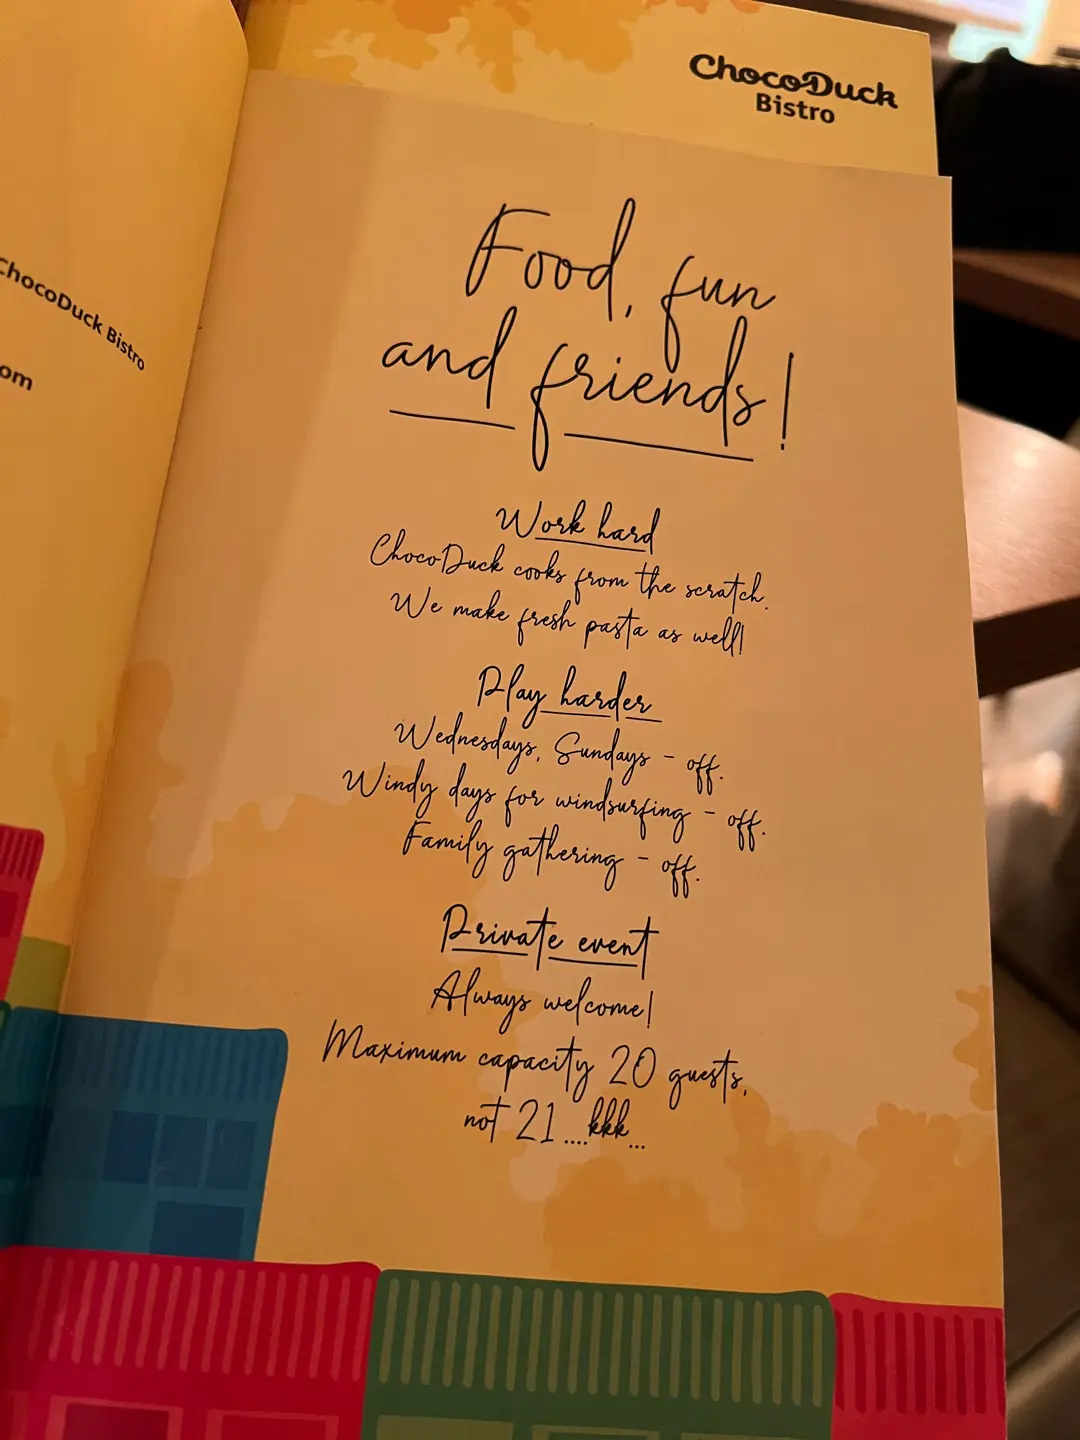 ChocoDuck
Bistro
ChocoDuck Bistro
om
Food, fun
and friends!
Work hard
ChocoDuck cooks from the scratch.
We make fresh pasta as well!
Play harder
Wednesdays, Sundays - off.
Windy days for windsurfing - off.
Family gathering - off.
Private event
Always welcome!
Maximum capacity 20 guests,
not 21 ....kkk...